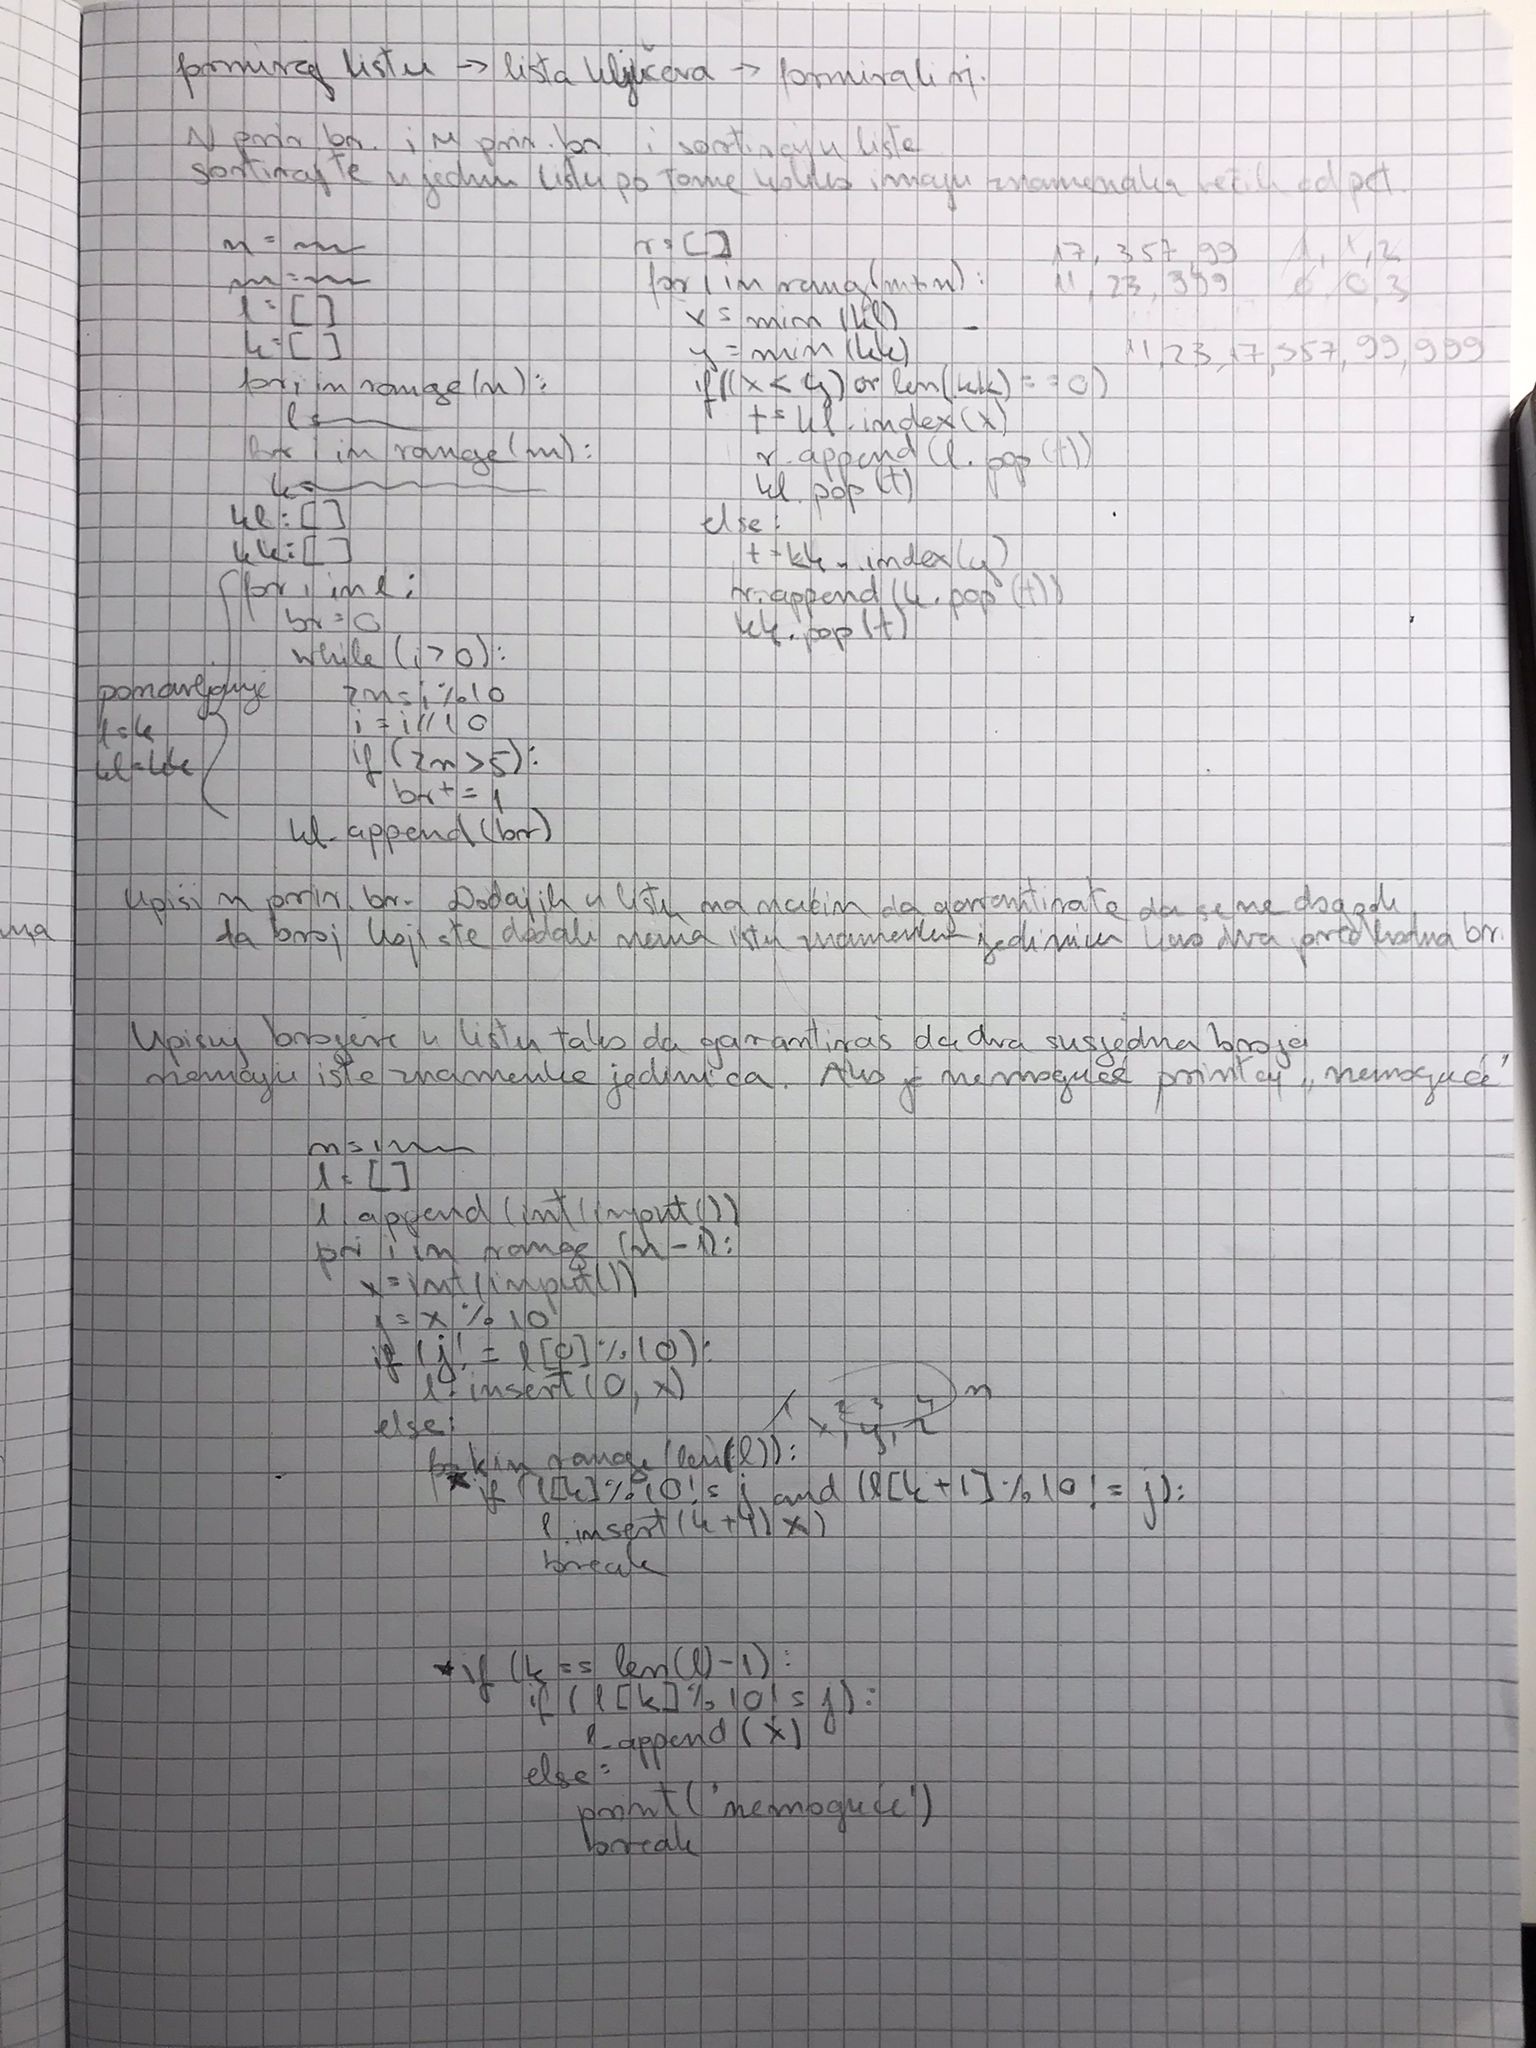 formiraj listu → lista ključeva → formirali rj.
N prir. br. i M prir. br. i sortiraju liste
sortirajte u jednu listu po tome koliko imaju znamenaka većih od pet.
n =
m =
l = [ ]
k = [ ]
for i in range(n):
l =
for i in range(m):
k =
kl = [ ]
kk = [ ]
for i in l:
br = 0
while (i > 0):
zn = i % 10
i = i // 10
if (zn > 5):
br += 1
kl.append(br)
ponavljanje
l = k
kl = kk
r = [ ]
for i in rang(m+n):
x = min (kl)
y = min (kk)
if ((x < y) or len(kk) == 0)
t = kl.index(x)
r.append(l.pop(t))
kl.pop(t)
else:
t = kk.index(y)
r.append(k.pop(t))
kk.pop(t)
17, 357, 99 1, 1, 2
11, 23, 999 0, 0, 3
11, 23, 17, 357, 99, 999
Upiši n prir. br. Dodaj ih u listu na način da garantirate da se ne dogodi
da broj koji ste dodali nema istu znamenku jedinicu kao dva prethodna br.
Upisuj brojeve u listu tako da garantiraš da dva susjedna broja
nemaju iste znamenke jedinica. Ako je nemoguće printaj "nemoguće"
n =
l = [ ]
l.append(int(input())
for i in range (n-1):
x = int(input())
j = x % 10
if (j != l[0] % 10):
l.insert(0, x)
else:
for k in range (len(l)):
* if (l[k] % 10 != j and (l[k+1] % 10 != j):
l.insert(k+1, x)
break
1 2 3 4 n
x, y, z
* if (k == len(l)-1):
if (l[k] % 10 != j):
l.append(x)
else:
print('nemoguće')
break